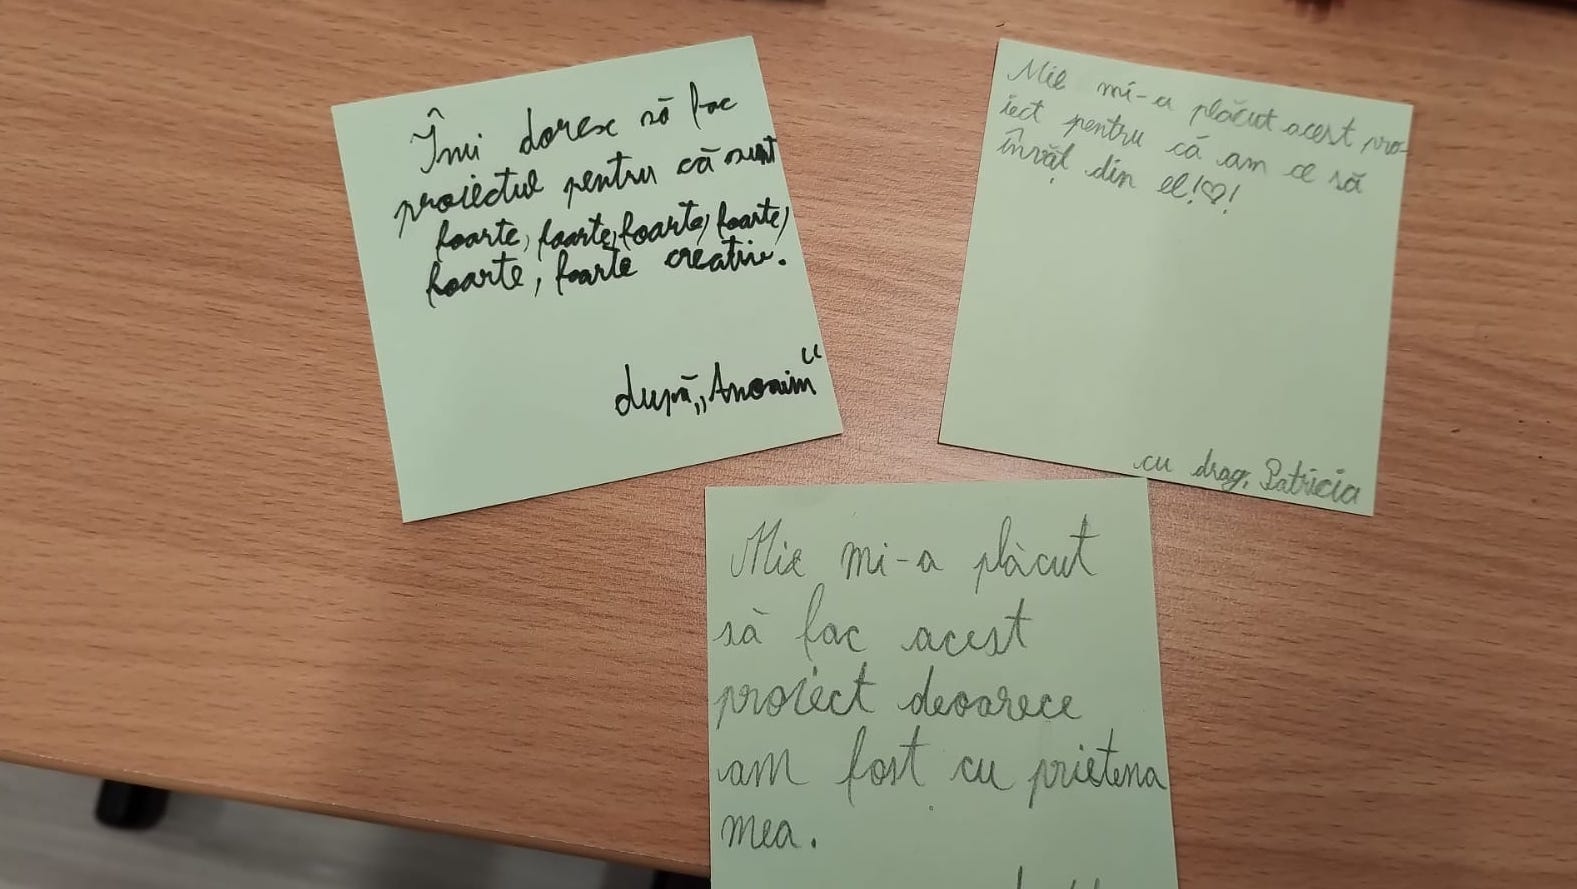 Îmi doresc să fac
proiectul pentru că sunt
foarte, foarte, foarte, foarte,
foarte, foarte creativ.
după „Anonim“
Mie mi-a plăcut acest pro-
iect pentru că am ce să
învăț din el!♡!
cu drag, Patricia
Mie mi-a plăcut
să fac acest
proiect deoarece
am fost cu prietena
mea.